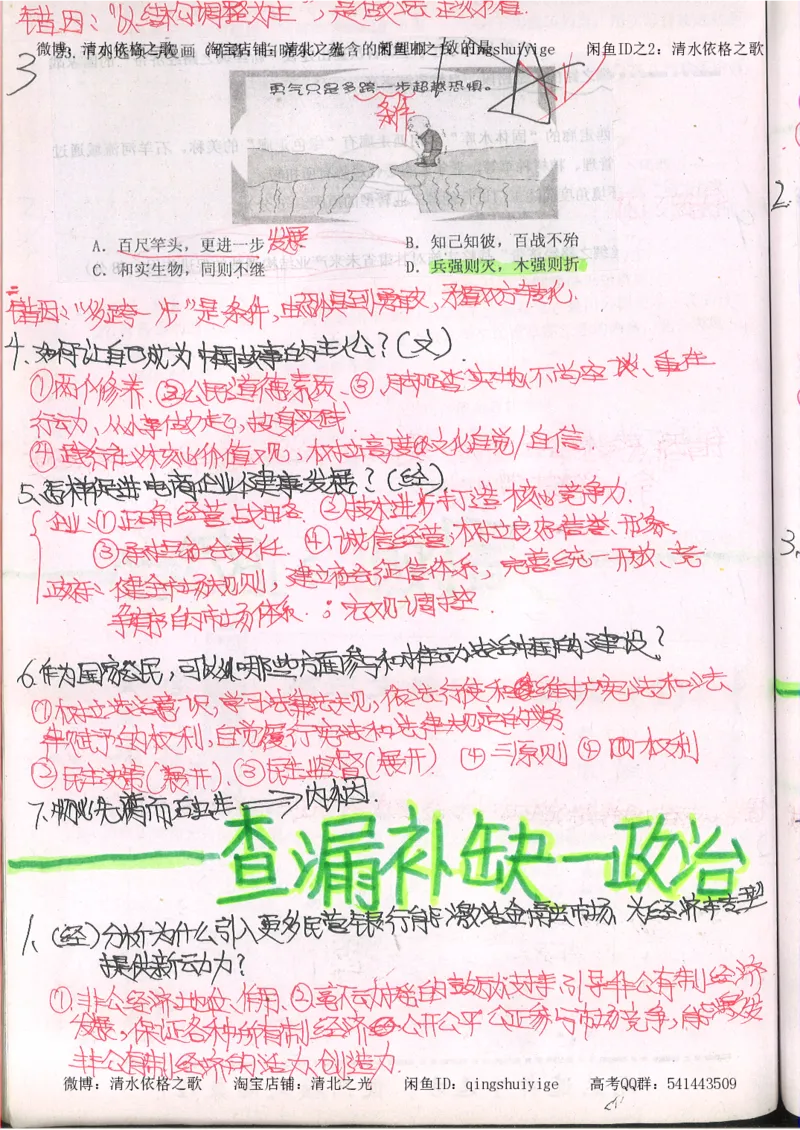 错因："以结构调整为主"，是做法
微博：清水依格之歌 淘宝店铺：清北之光 闲鱼ID：qingshuiyige 闲鱼ID之2：清水依格之歌
3
勇气只是多跨一步超越恐惧。
条件
A．百尺竿头，更进一步 发展 B．知己知彼，百战不殆
C．和实生物，同则不继 D．兵强则灭，木强则折
错因："多跨一步"是条件，由恐惧到勇敢，矛盾双方转化
4．如何让自己成为中国故事的主人公？(文)
①两个修养．②公民道德素质、③、脚踏实地(不尚空谈、重在
行动，从小事做起)，投身实践
④践行社义核心价值观，树立高度的文化自觉/自信．
5、怎样促进电商企业健康发展？(经)
企业：①正确经营战略 ②技术进步，打造核心竞争力．
③承担社会责任．④诚信经营，树立良好信誉、形象．
政府：健全市场规则，建立社会征信体系，完善统一开放、竞
争有序的市场体系．；宏观调控．
6．作为国家公民，可以从哪些方面参与和推动法治中国的建设？
①树立法治意识，学习法律法规，依法行使和维护宪法和法
律赋予的权利，自觉履行宪法和法律规定的义务
②民主决策(展开)．③民主监督(展开) ④三原则 ④四权利
7、物必先腐而后虫生 ⟹ 内因．
查漏补缺—政治
1、(经)分析为什么引入更多民营银行能够激活金融市场，为经济转型
提供新动力？
①非公经济地位、作用．②毫不动摇的鼓励支持，引导非公有制经济
发展，保证各种所有制经济公开公平公正参与市场竞争，能激发
非公有制经济的活力、创造力．
微博：清水依格之歌 淘宝店铺：清北之光 闲鱼ID：qingshuiyige 高考QQ群：541443509
2.
3.